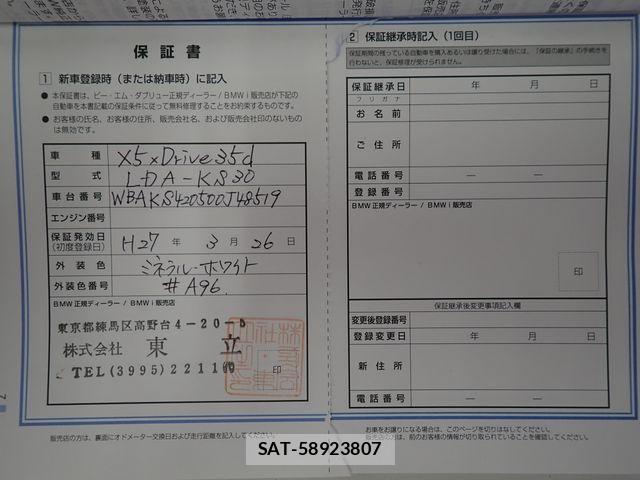 保証書
1 新車登録時（または納車時）に記入
● 本保証書は、ビー・エム・ダブリュー正規ディーラー / BMW i 販売店が下記の
自動車を本書記載の保証条件に従って無料修理することをお約束するものです。
● お客様の氏名、お客様の住所、販売会社名、および販売会社印のないもの
は無効です。
車種 X5 xDrive 35d
型式 LDA-KS30
車台番号 WBAKS420500J48519
エンジン番号
保証発効日
(初度登録日) H27 年 3 月 26 日
外装色 ミネラル・ホワイト
外装色番号 # A96.
BMW 正規ディーラー / BMW i 販売店
東京都練馬区高野台4-20-
株式会社 東立
TEL (3995) 2211㈹
印
7
販売店の方は、裏面にオドメーター交換日および走行距離を記入してください。
2 保証継承時記入（1回目）
保証期間の残っている自動車を購入あるいは譲り受けた場合には、「保証の継承」の手続きを
行わないと、保証修理が受けられません。
保証継承日 年 月 日
フリガナ
お名前
ご住所
電話番号 — —
登録番号
BMW 正規ディーラー / BMW i 販売店
印
保証継承後変更事項記入欄
変更後登録番号
登録変更日 年 月 日
新住所
電話番号 — —
お車をお譲りになる場合は、このページを切りはなしてください。
販売店の方は、前のお客様の情報が切り取られていることを確認してください。
SAT-58923807